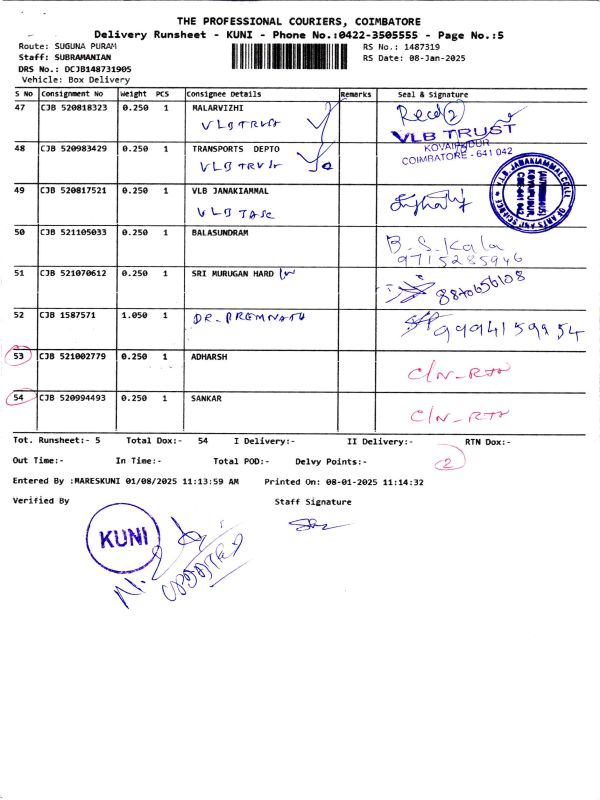 THE PROFESSIONAL COURIERS, COIMBATORE
Delivery Runsheet - KUNI - Phone No.:0422-3505555 - Page No.:5
Route: SUGUNA PURAM
RS No.: 1487319
Staff: SUBRAMANIAN
RS Date: 08-Jan-2025
DRS No.: DCJB148731905
Vehicle: Box Delivery
S No Consignment No Weight PCS Consignee Details Remarks Seal & Signature
47 CJB 520818323 0.250 1 MALARVIZHI Recd 2
VLB TRUST VLB TRUST
KOVAIPUDUR
COIMBATORE - 641 042
48 CJB 520983429 0.250 1 TRANSPORTS DEPTO
VLB TRUST
49 CJB 520817521 0.250 1 VLB JANAKIAMMAL
VLB JASC
V.L.B. JANAKIAMMAL COLLEGE OF ARTS AND SCIENCE
(AUTONOMOUS)
KOVAIPUDUR,
CBE-641 042
50 CJB 521105033 0.250 1 BALASUNDRAM B.S. Kala
9715285946
51 CJB 521070612 0.250 1 SRI MURUGAN HARD 8870656108
52 CJB 1587571 1.050 1 DR. PREMNATH 9994159954
53 CJB 521002779 0.250 1 ADHARSH C/N-RTN
54 CJB 520994493 0.250 1 SANKAR C/N-RTN
Tot. Runsheet:- 5 Total Dox:- 54 I Delivery:- II Delivery:- RTN Dox:-
2
Out Time:- In Time:- Total POD:- Delvy Points:-
Entered By :MARESKUNI 01/08/2025 11:13:59 AM Printed On: 08-01-2025 11:14:32
Verified By Staff Signature
KUNI
UPDATED